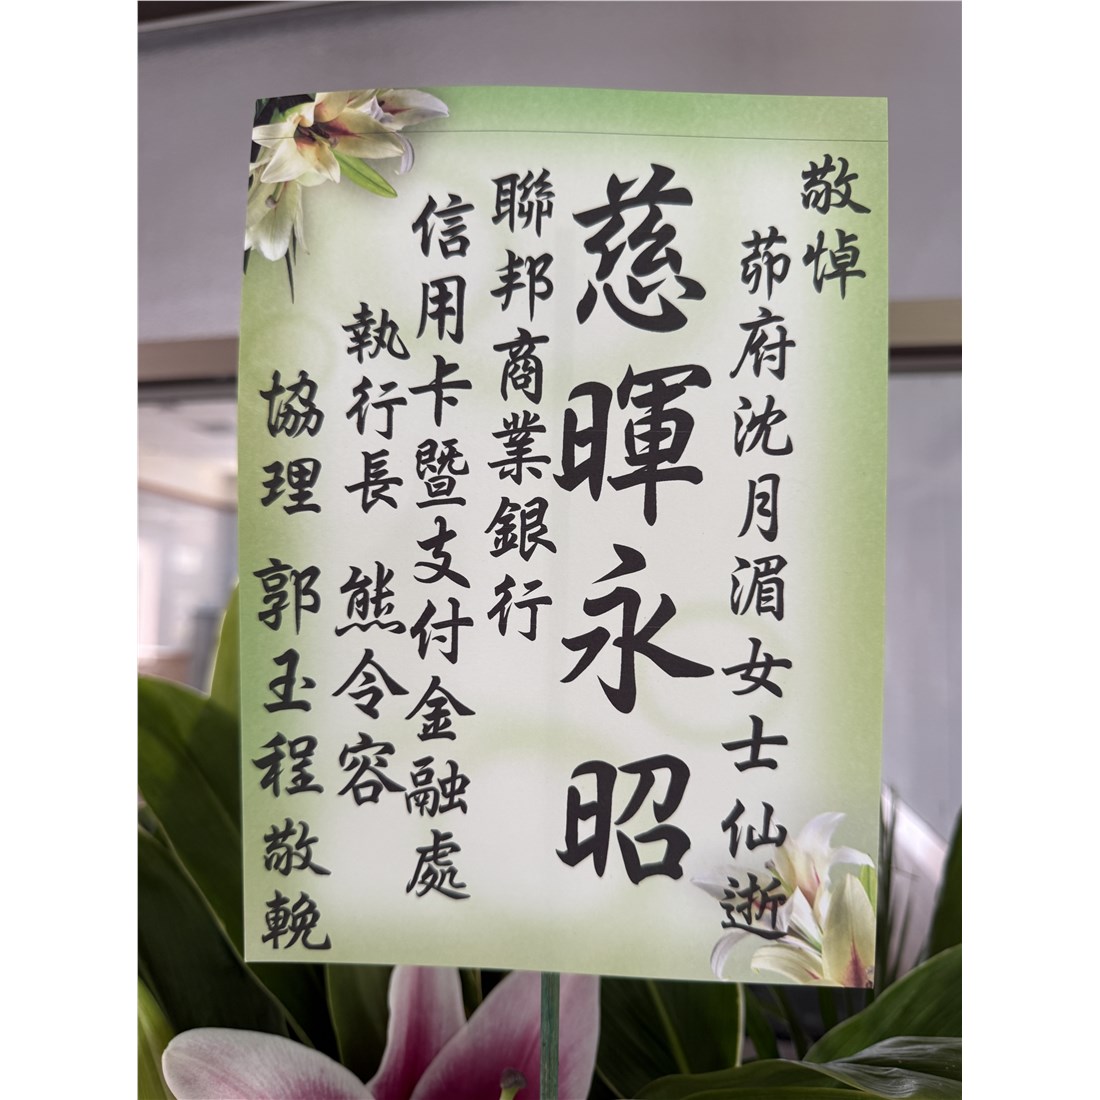 敬悼
茆府沈月湄女士仙逝
慈暉永昭
聯邦商業銀行
信用卡暨支付金融處
執行長 熊令容
協理 郭玉程敬輓